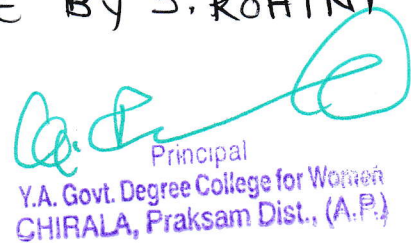 BY J. ROHINI
Principal
Y.A. Govt. Degree College for Women
CHIRALA, Praksam Dist., (A.P.)